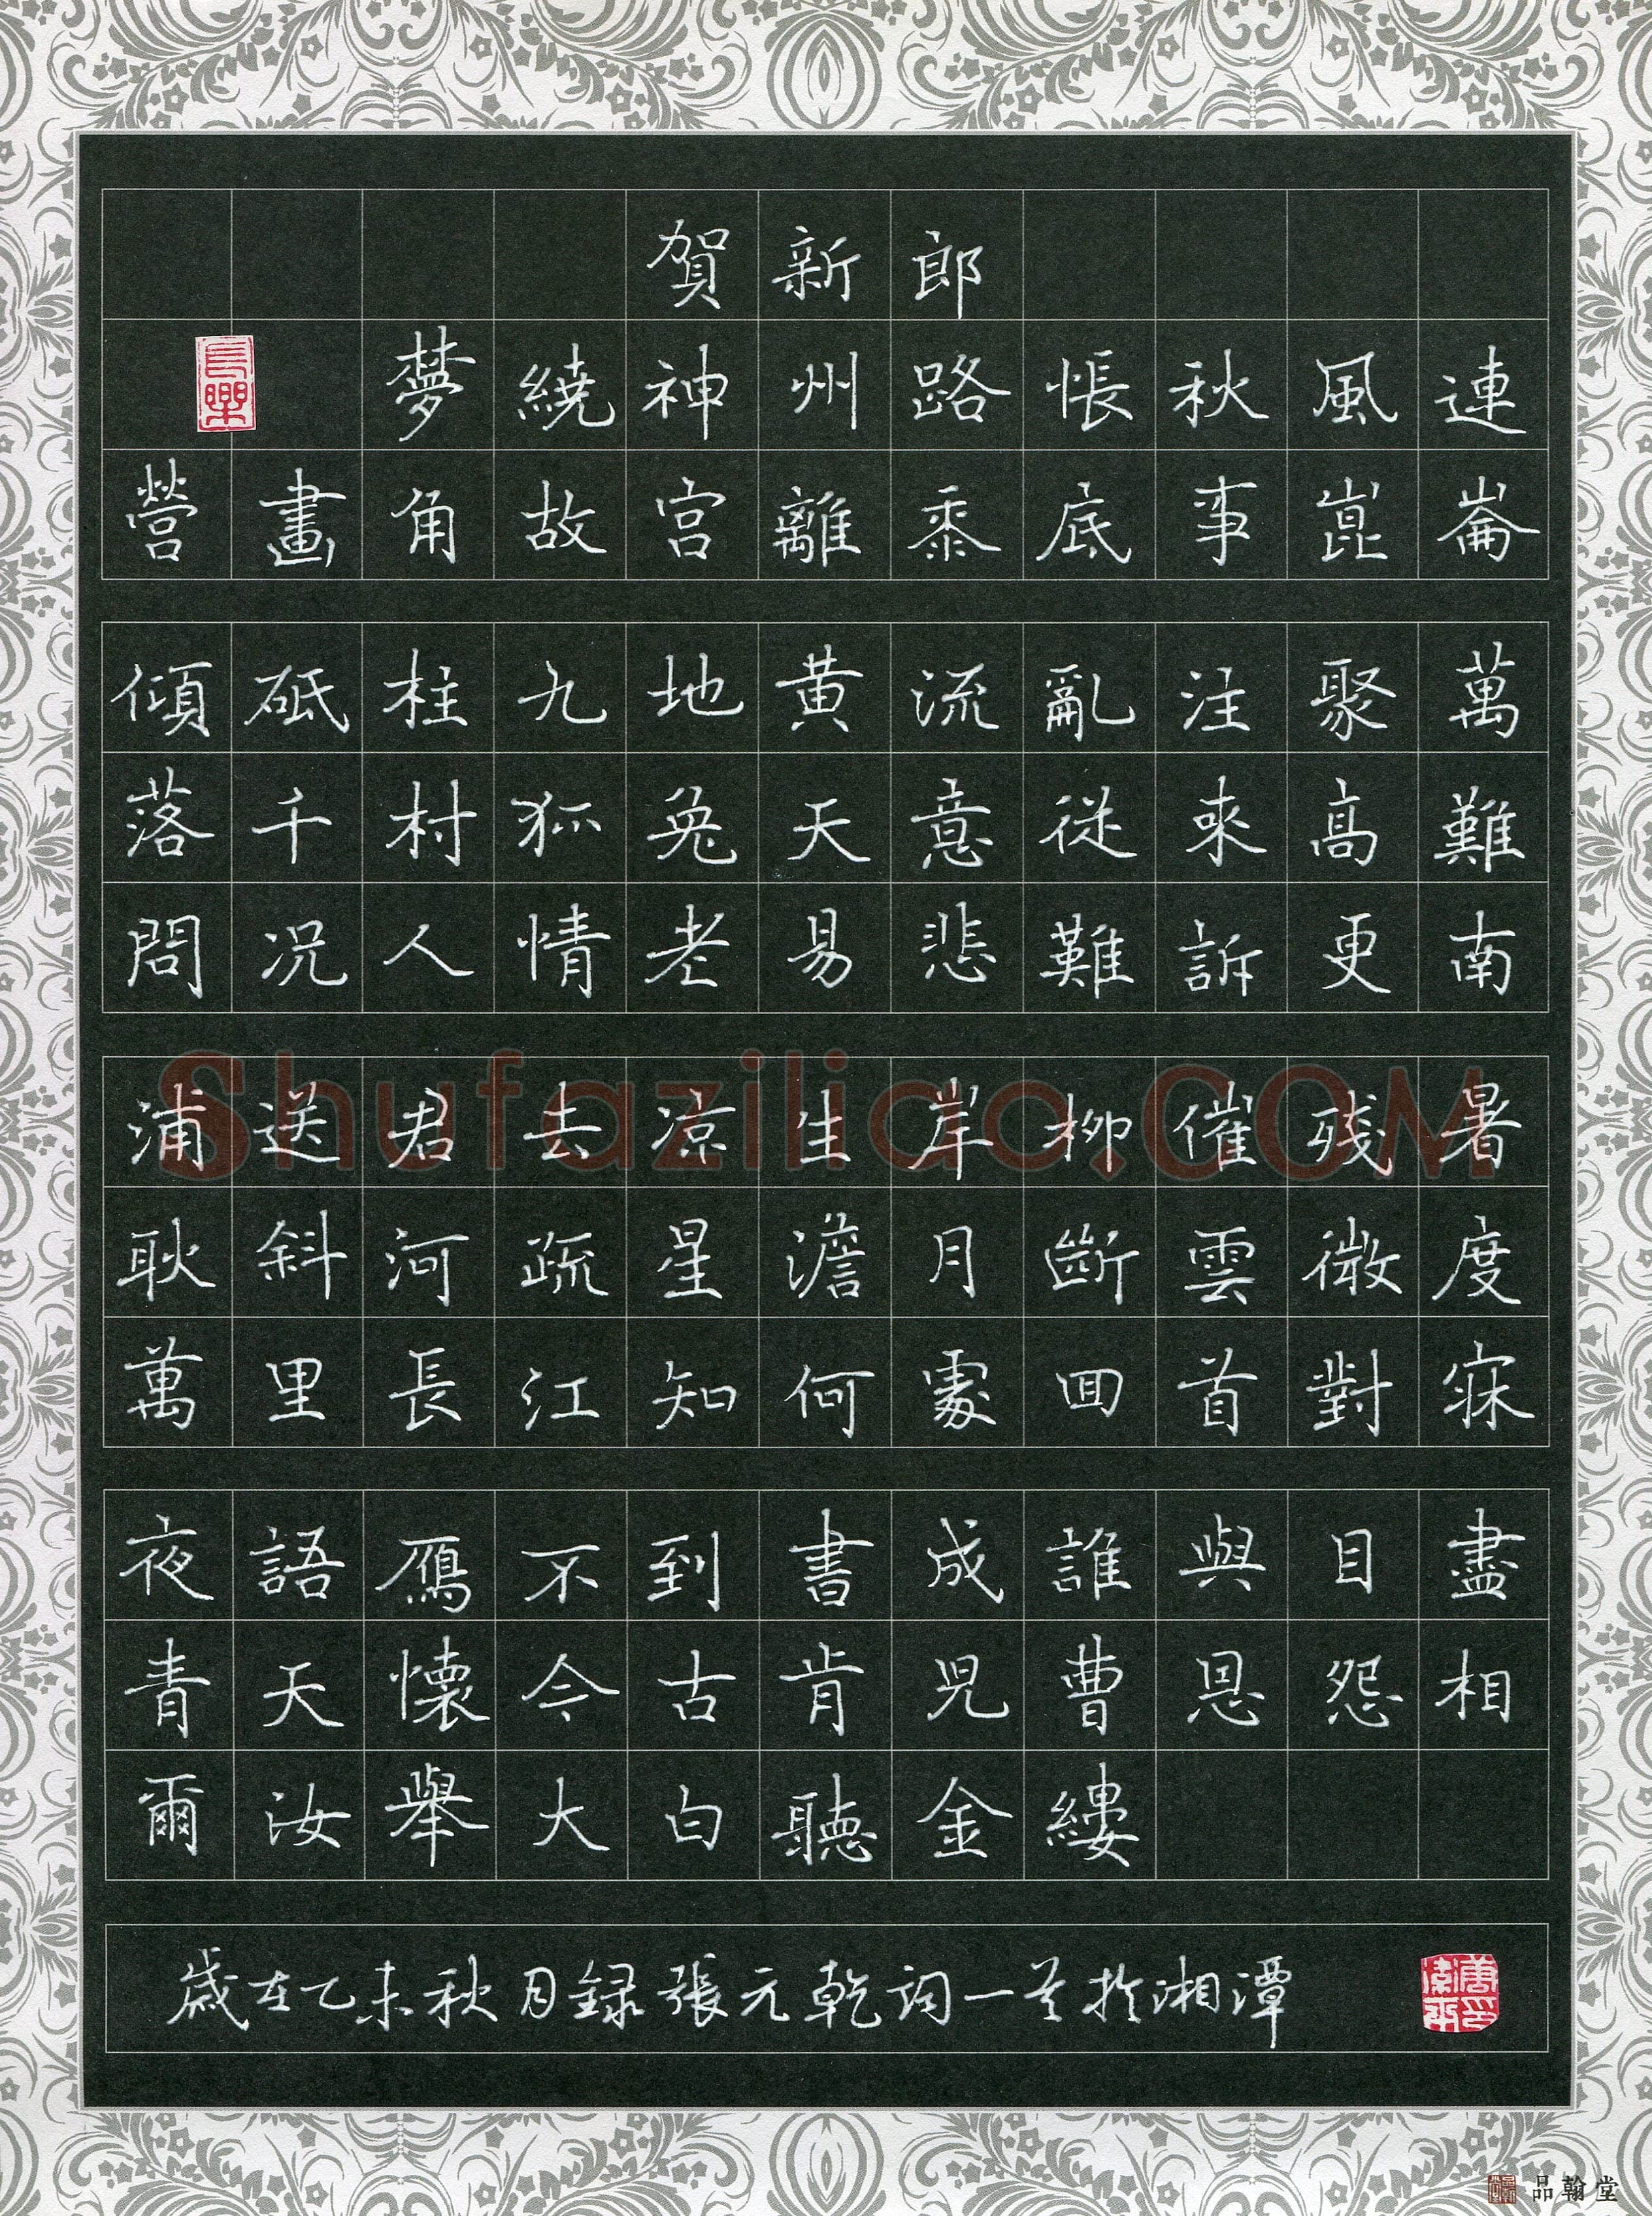 賀新郎
長樂
夢繞神州路悵秋風連
營畫角故宮離黍底事崑崙
傾砥柱九地黃流亂注聚萬
落千村狐兔天意從來高難
問況人情老易悲難訴更南
浦送君去涼生岸柳催殘暑
Shufaziliao.COM
耿斜河疏星澹月斷雲微度
萬里長江知何處回首對寐
夜語鴈不到書成誰與目盡
青天懷今古肯兒曹恩怨相
爾汝舉大白聽金縷
歲在乙未秋月錄張元乾詞一首於湘潭
品翰堂